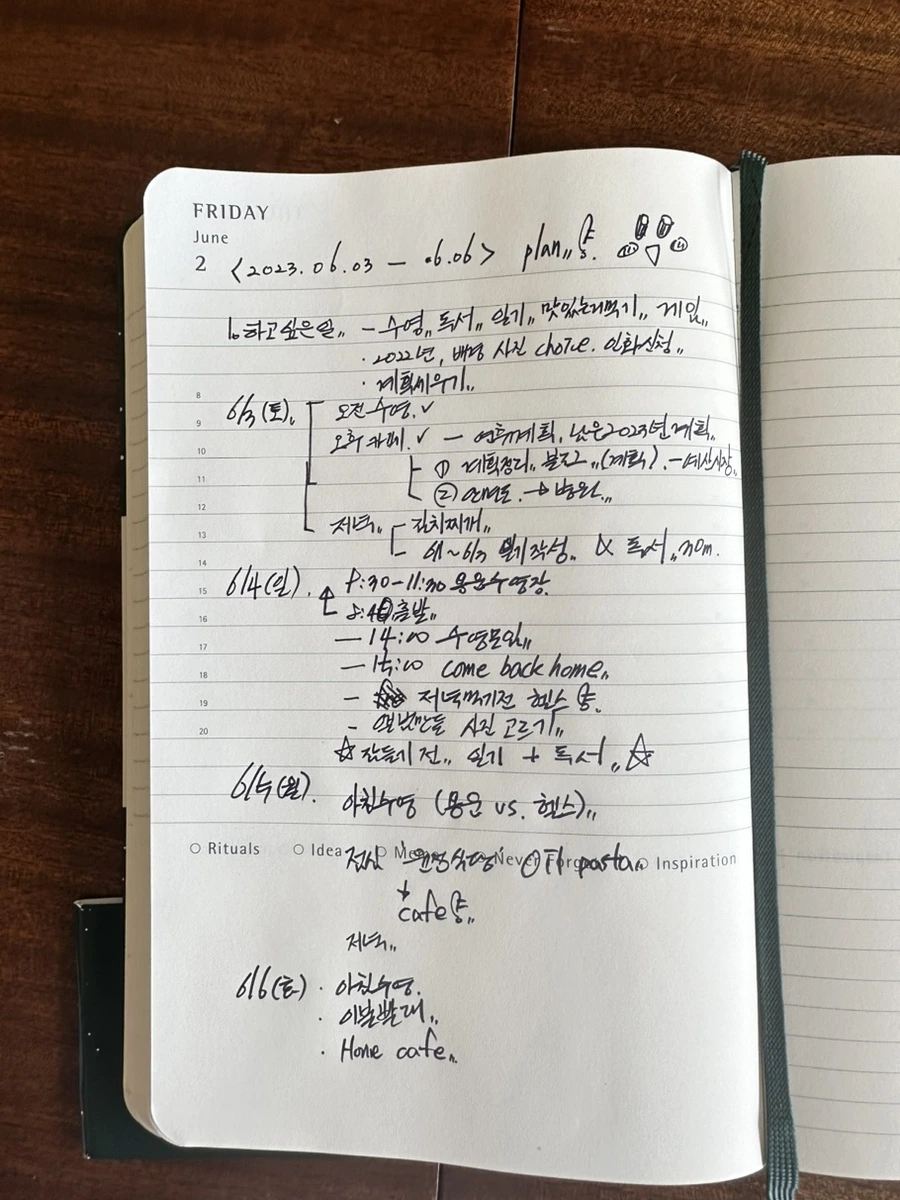 FRIDAY
June
2 <2023. 06. 03 - .6.06> plan,, 흥.
하고싶은일,, - 수영,, 독서,, 일기,, 맛있는거먹기,, 게임,,
· 2022년, 배경 사진 choice. 인화신청,,
· 계획세우기,,
8
6/3(토). 오전 수영. ✓
9
오후 카페. ✓ - 연휴계획, 남은2023년계획,,
10
① 계획정리,, (계획). - 예산시장
11
② →
12
저녁,, 김치찌개,,
13
6/1~6/3 일기작성,, & 독서,, 30m.
14
6/4(일). 8:30-11:30 용운수영장.
15
출발,,
16
- 14:00 수영모임,,
17
- 15:00 come back home,,
18
- 저녁먹기전 헬스 흥.
19
- 사진 고르기,,
20
☆ 잠들기 전,, 일기 + 독서,, ☆
6/5(월). 아침수영 (용운 vs. 헬스),,
Rituals Idea Never Inspiration
점심 pasta,,
cafe 흥,,
저녁,,
6/6(화) · 아침수영.
· 이불빨래,,
· Home cafe,,